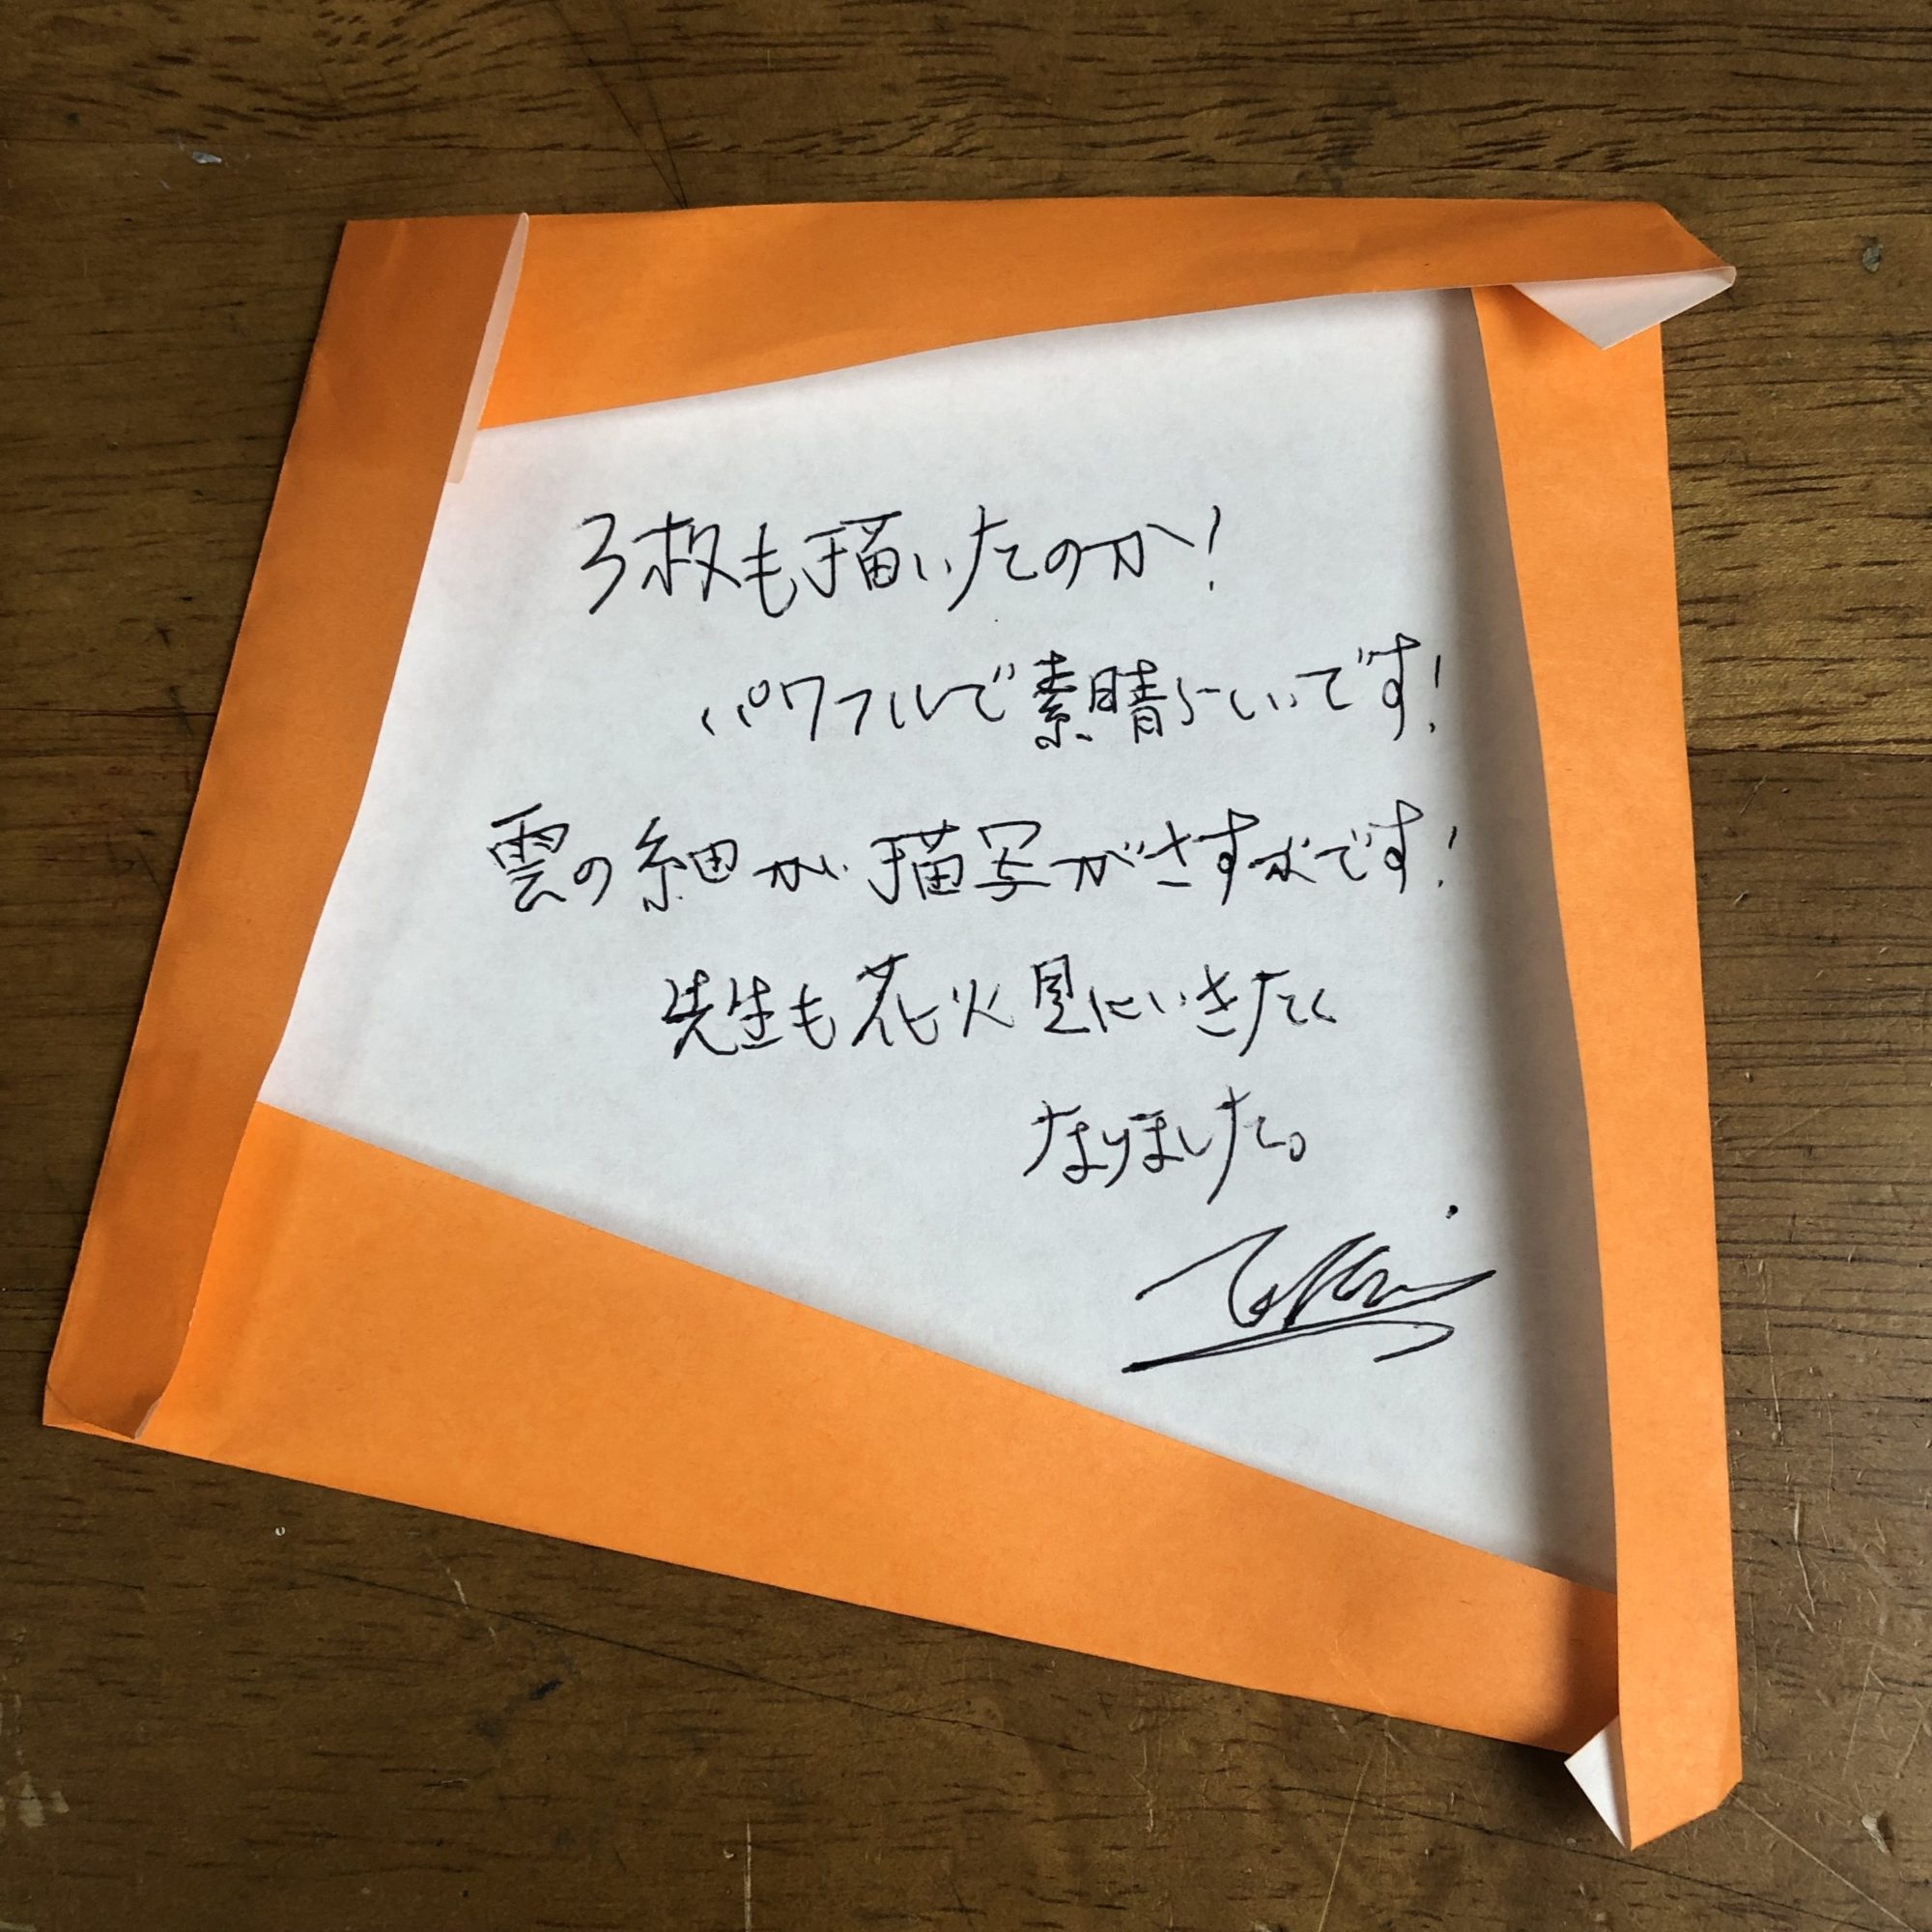 3枚も描いたのか!
パワフルで素晴らしいです!
雲の細かい描写がさすがです!
先生も花火見にいきたく
なりました。